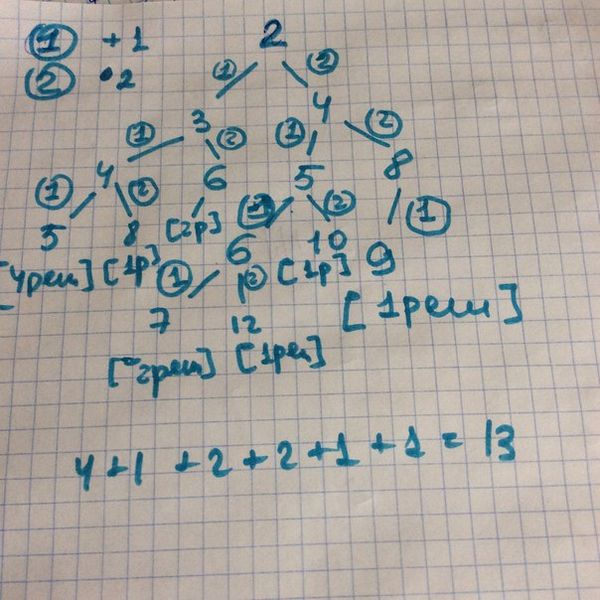 ① +1
② •2
2
① ②
3 4
① ② ① ②
4 6 5 8
① ② [2р] ① ② ①
5 8 6 10 9
[4реш] [1р] ① ② [1р] [1реш]
7 12
[2реш] [1реш]
4+1+2+2+1+1=13